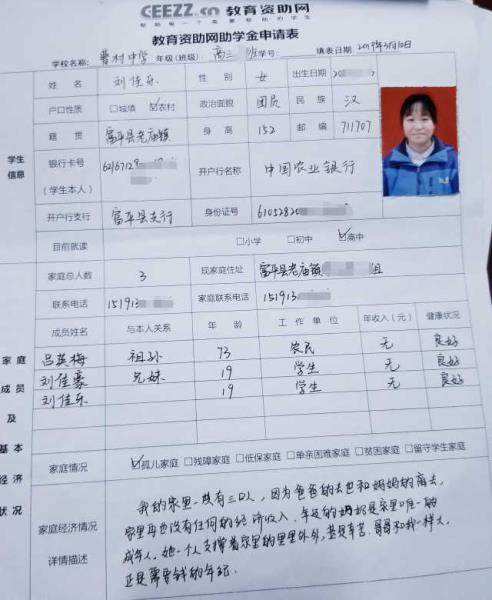 CEEZZ.cn 教育资助网
教育资助网助学金申请表
学校名称: 曹村中学 年级(班级): 高三 班 学号: 填表日期
姓 名 刘佳乐 性 别 女 出生日期 20
户口性质 □城镇 ☑农村 政治面貌 团员 民 族 汉
籍 贯 富平县老庙镇 身 高 152 邮 编 711707
学生信息
银行卡号(学生本人) 6216712 开户行名称 中国农业银行
开户行支行 富平县支行 身份证号 61052820
目前就读 □小学 □初中 ☑高中
家庭总人数 3 现家庭住址 富平县老庙镇 组
联系电话 151913 家庭联系电话 151913
家庭成员及基本经济状况
成员姓名 与本人关系 年 龄 工 作 单 位 年收入(元) 健康状况
吕英梅 祖孙 73 农民 无 良好
刘佳豪 兄妹 19 学生 无 良好
刘佳乐 19 学生 无 良好
家庭情况 ☑孤儿家庭 □残障家庭 □低保家庭 □单亲困难家庭 □贫困家庭 □留守学生家庭
家庭经济情况详情描述
我的家里一共有三口人,因为爸爸的去世和妈妈的离去,
家里再也没有任何的经济收入.年迈的奶奶是家里唯一的
成年人.她一个人支撑着家里的里里外外,甚是辛苦.哥哥和我一样大,
正是需要钱的年纪.